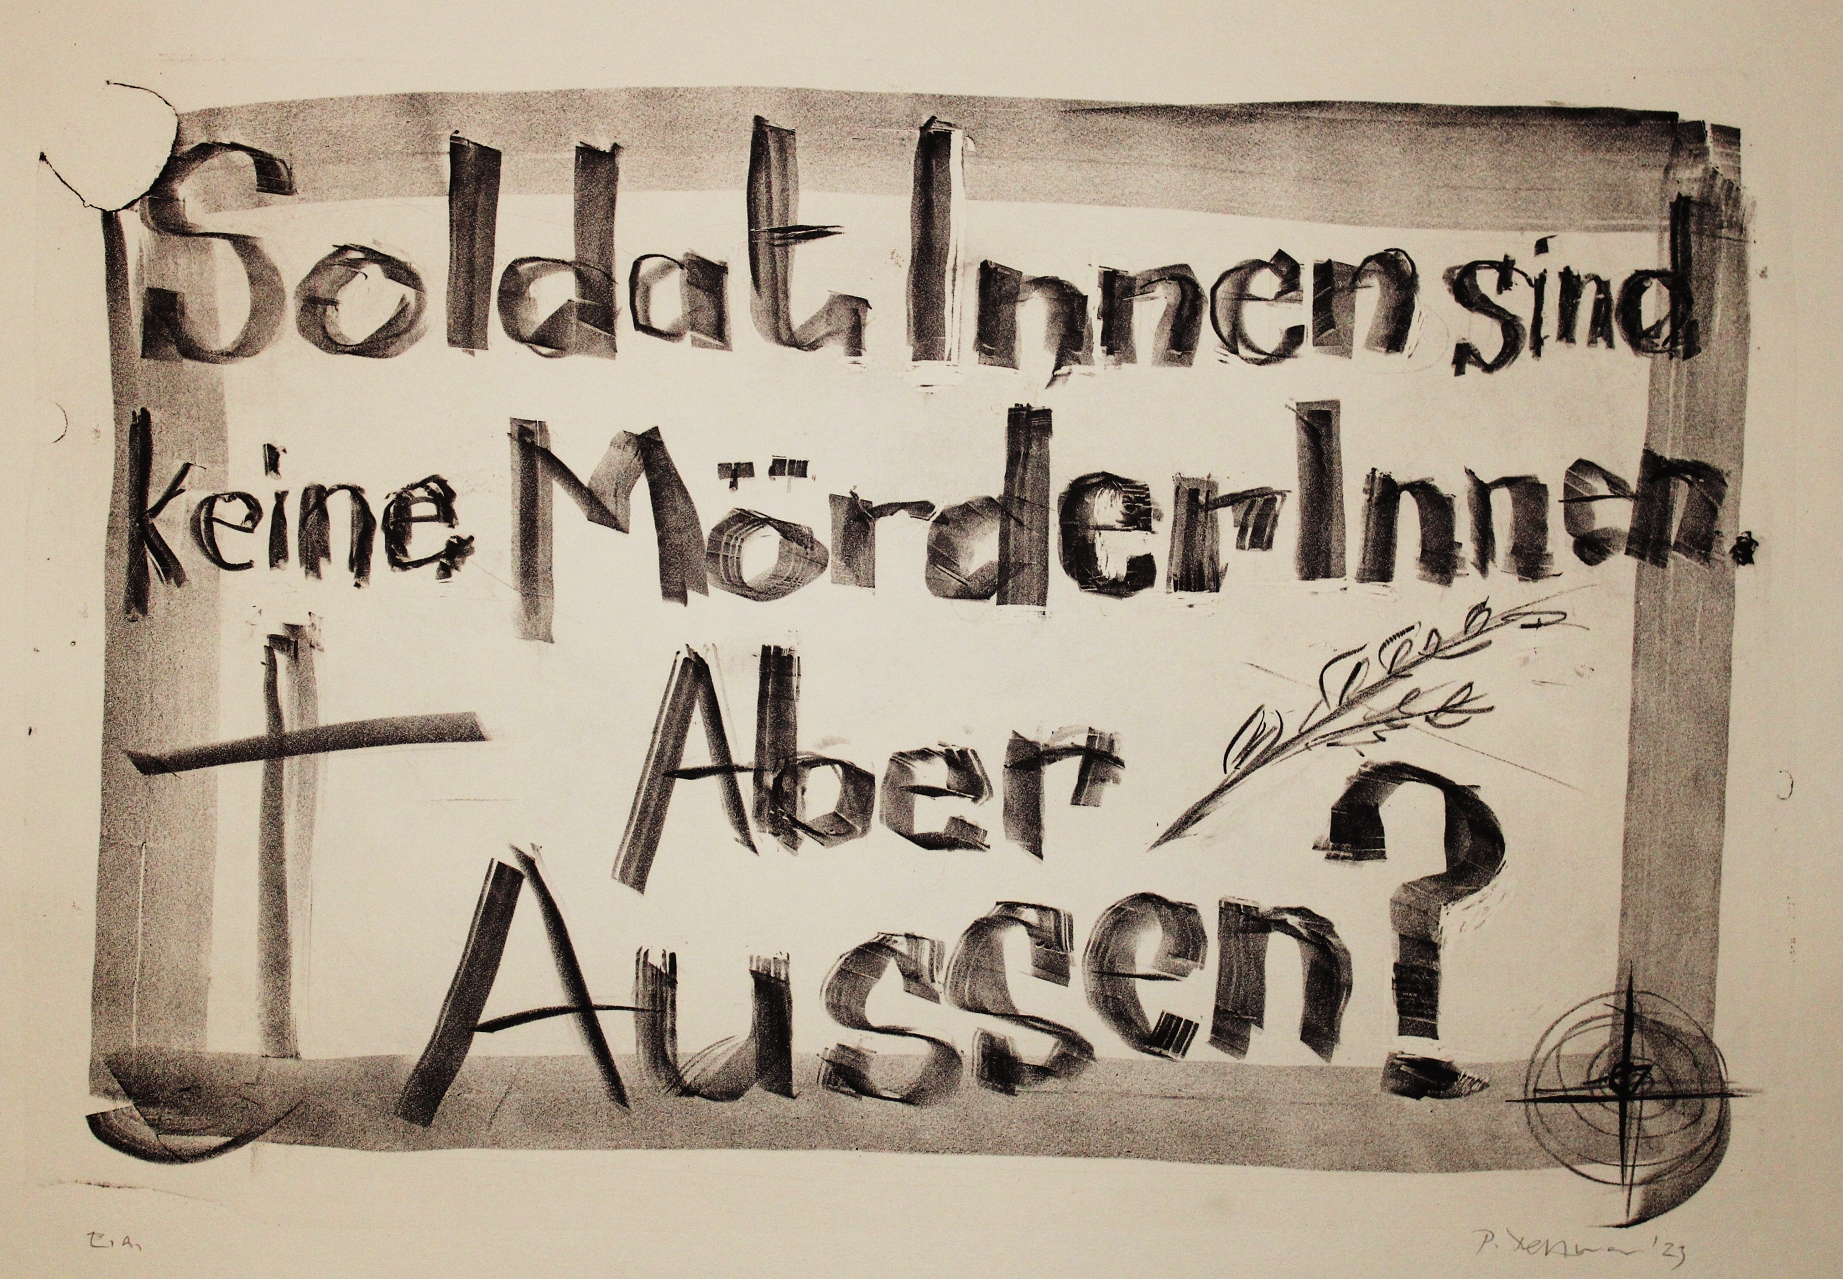 SoldatInnen sind
keine MörderInnen.
Aber
Aussen?
E.A.
P. '23